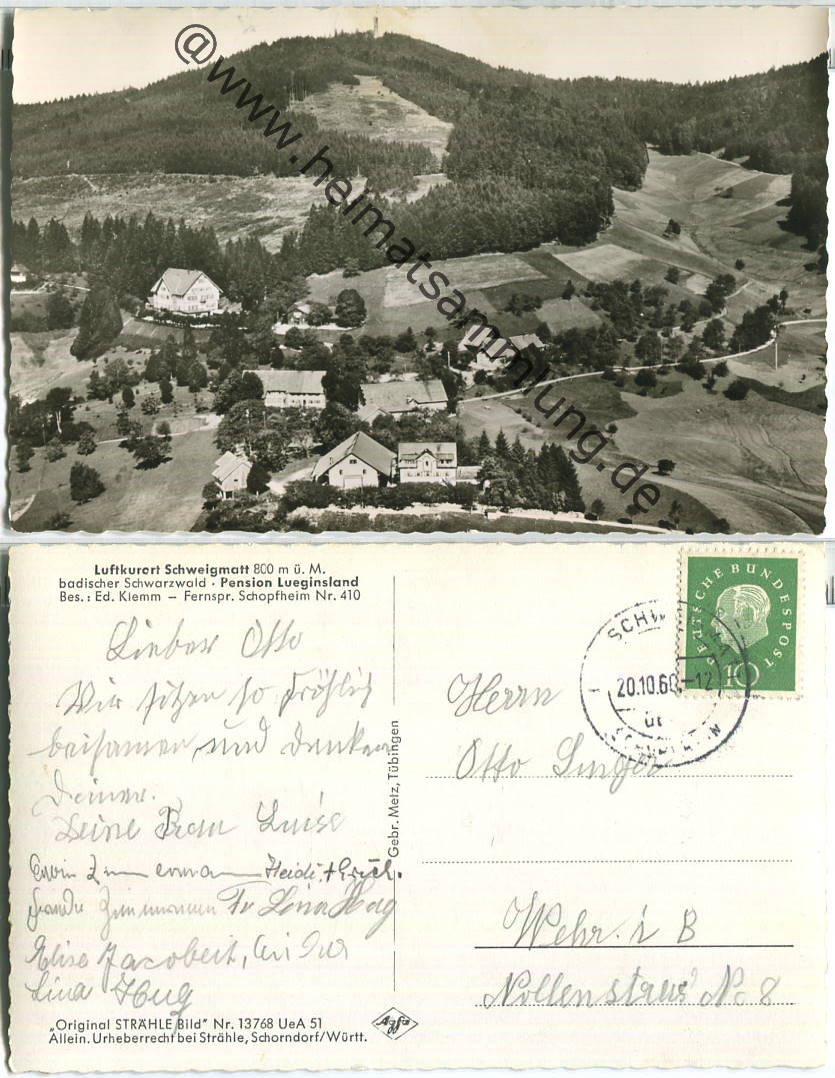 @www.heimatsammlung.de
Luftkurort Schweigmatt 800 m ü. M.
badischer Schwarzwald · Pension Lueginsland
Bes.: Ed. Klemm – Fernspr. Schopfheim Nr. 410
Lieber Otto
Wir sitzen so fröhlich
beisamen und denken
Deiner.
Deine Frau Luise
Erwin Heidi + Erich.
Zimmermann Fr Lina Hug
Elise Jacobeit,
Lina Hug
„Original STRÄHLE Bild" Nr. 13768 UeA 51
Allein. Urheberrecht bei Strähle, Schorndorf/Württ.
Gebr. Metz, Tübingen
Agfa
DEUTSCHE BUNDESPOST
10
SCHW
20.10.60.-12
ü
Herrn
Otto
Wehr. i B
Nollenstras No 8